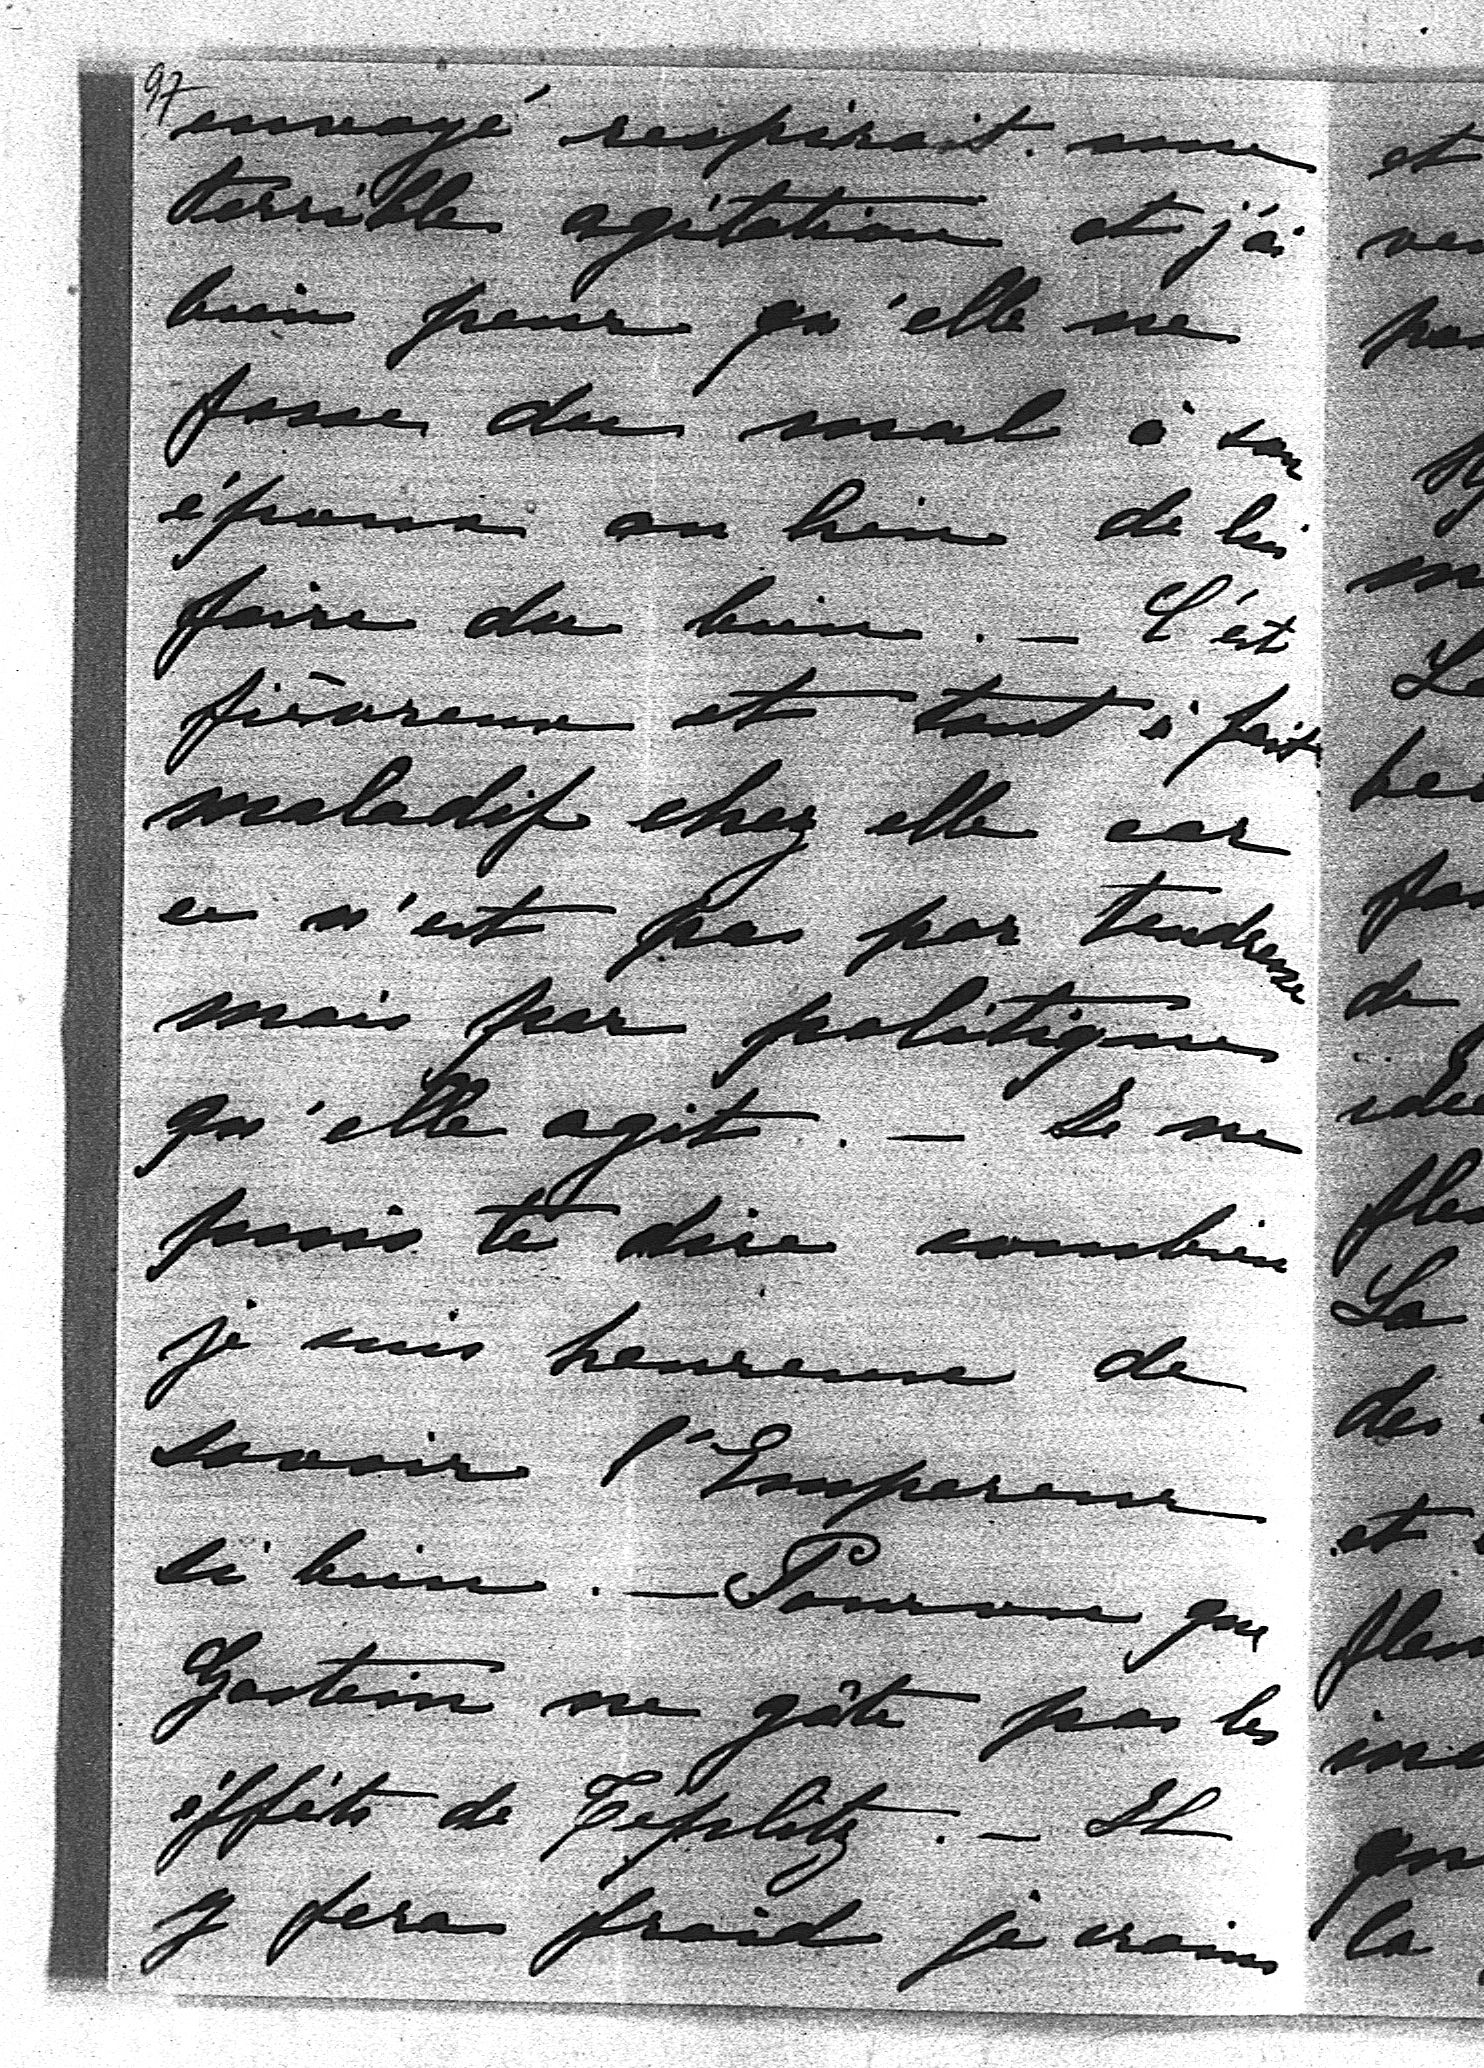 97
envoyé respirait une
terrible agitation et j'ai
bien peur qu'elle ne
fasse du mal à son
époux au lieu de lui
faire du bien. — C'est
fièvreux et tout à fait
maladif chez elle car
ce n'est pas par tendresse
mais par politique
qu'elle agit. — Je ne
puis te dire combien
je suis heureuse de
savoir l'Empereur
si bien. — Pourvu que
Gastein ne gâte pas les
éffêts de Téplitz. — Il
y fera froid je crains
et
de
La
des
et
la